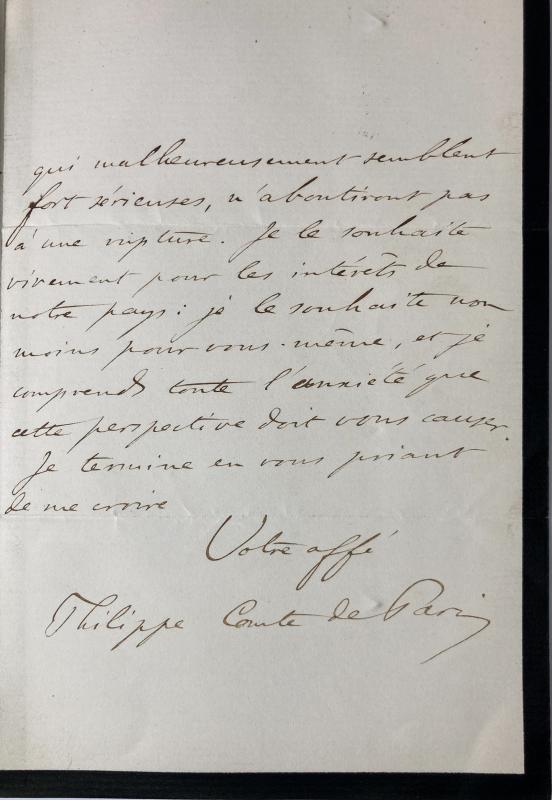 qui malheureusement semblent
fort sérieuses, n'aboutiront pas
à une rupture. Je le souhaite
vivement pour les intérêts de
notre pays : je le souhaite non
moins pour vous-même, et je
comprends toute l'anxiété que
cette perspective doit vous causer.
Je termine en vous priant
de me croire
Votre affé
Philippe Comte de Paris